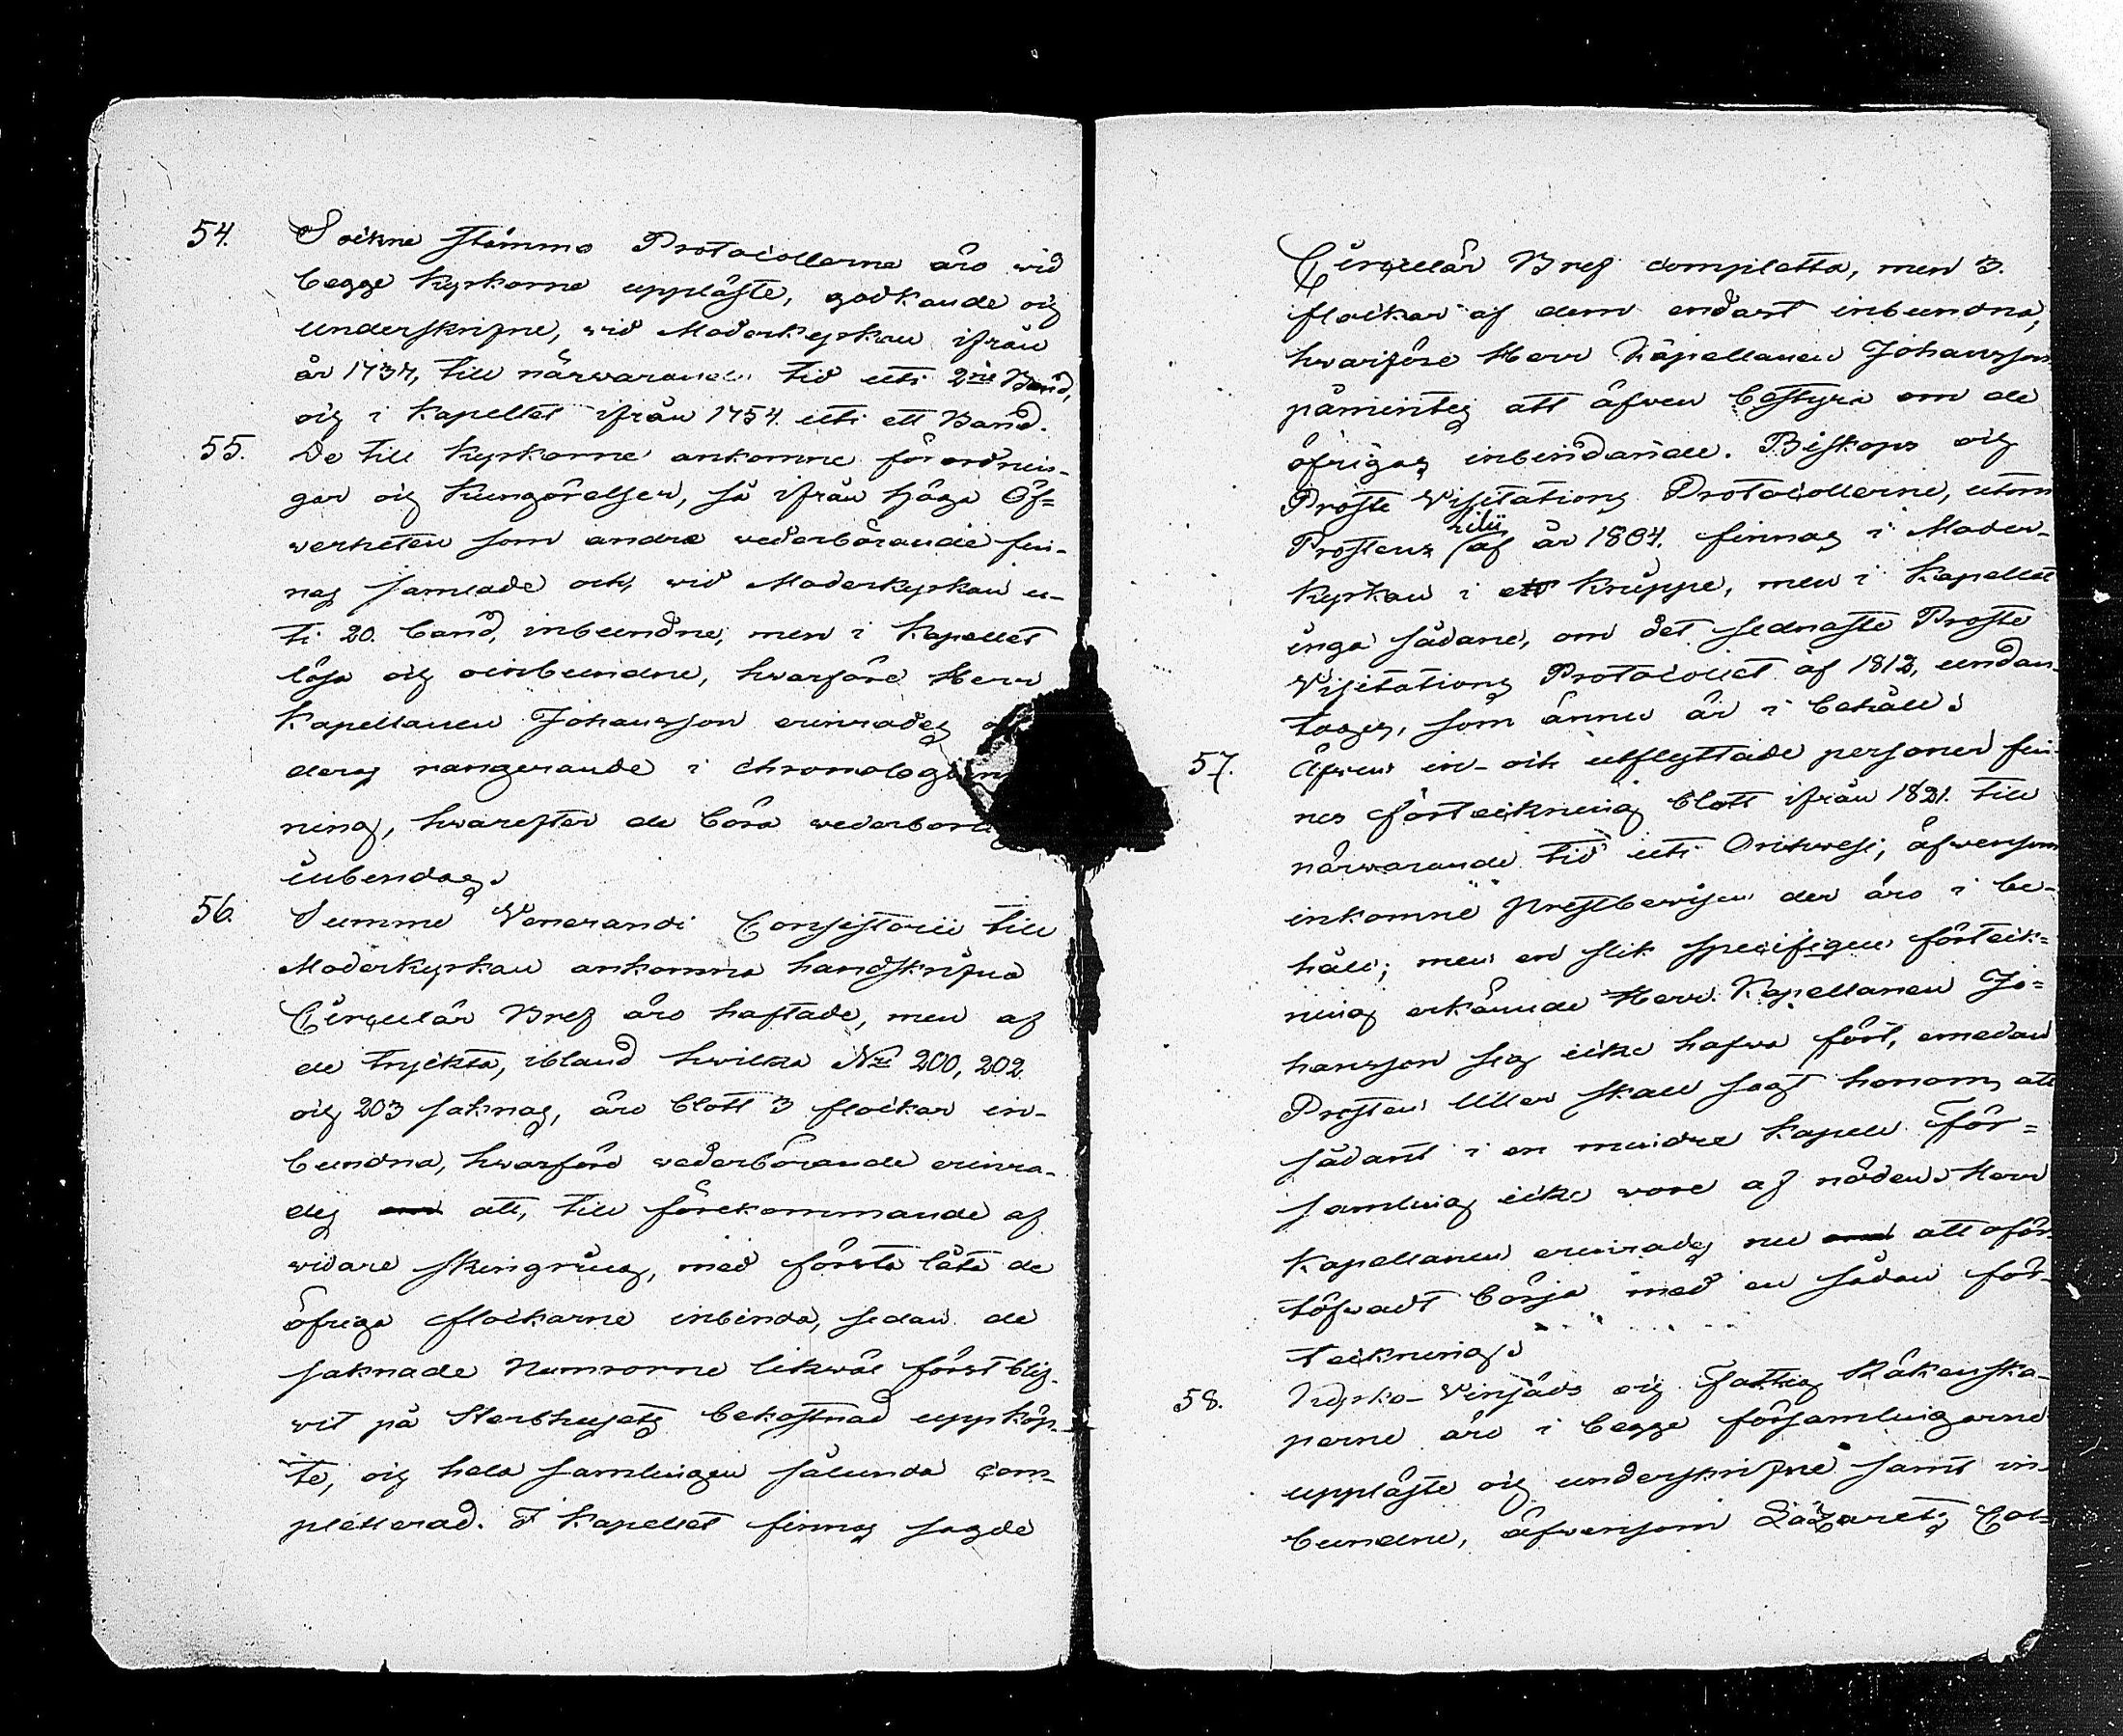 54. Sockne stämmo Protocollerne äro wid
begge Kyrkorne uppläste, godkände och
underskrifne, wid Moderkyrkan ifrån
år 1737, till närwarande tid uti 2ne Band,
och i Kapellet ifrån 1754. uti ett Band.
55. De till Kyrkorne ankomne förordnin-
gar och Kungörelser, så ifrån höga Öf-
werheten som andra wederbörande fin-
nas samlade och, wid Moderkyrkan u-
ti 20. band, inbundne, men i Kapellet
lösa och oinbundne, hwarföre Herr
Kapellanen Johansson erinrades
deras rangerande i chronologi
ning, hwarefter de böra wederbör
inbindas.
56. Summe Venerandi Consistorii till
Moderkyrkan ankomna handskrifna
Circulär Bref äro häftade, men af
de tryckta, ibland hwilka No 200, 202
och 203 saknas, äro blott 3 flockar in-
bundna, hwarföre wederbörande erinra-
des att, till förekommande af
widare skingring, med första låta de
öfriga flockarne inbinda, sedan de
saknade Numrorne likwäl först blif-
wit på Sterbhusets bekostnad uppköp-
te, och hela samlingen sålunda com-
pletterad. I Kapellet finnas sagde
Circulär Bref completta, men 3.
flockar af dem endast inbundna,
hwarföre Herr Kapellanen Johansson
påmintes att äfwen bestyra om de
öfrigas inbindande. Biskops och
Proste Visitations Protocollerne, utom
Prostens af år 1804. finnas i Moder-
kyrkan i knippe, men i Kapellet
inga sådane, om det sednaste Proste
Visitations Protocollet af 1812, undan-
tages, som ännu är i behåll.
57. Äfwen in- och utflyttade personer fin-
nes förteckning blott ifrån 1821. till
närwarande tid uti Orihwesi, äfwensom
inkomne prestbewisen der äro i be-
håll; men en slik specifique förteck-
ning erkände Herr Kapellanen Jo-
hansson sig icke hafwa fört, emedan
Prosten Uller skall sagt honom att
sådant i en mindre Kapell För-
samling icke wore af nöden. Herr
Kapellanen erinrades nu att oför-
töfwadt börja med en sådan för-
teckning.
58. Kyrko- Vinjäds och Fattig Räkenska-
perne äro i begge församlingarne
uppläste och underskrifne samt in-
bundne, äfwensom Lazarets Col-